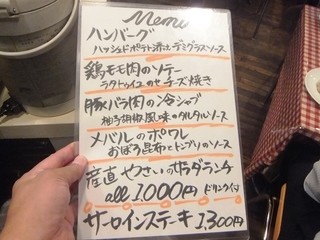 Menu
ハンバーグ
ハッシュドポテト添え デミグラスソース
鶏モモ肉のソテー
ラタトゥイユのせ チーズ焼き
豚バラ肉の冷シャブ
柚子胡椒風味のタルタルソース
メバルのポワレ
おぼろ昆布とドンブリのソース
産直やさいのサラダランチ
all 1,000円 ドリンク付
サーロインステーキ 1,300円